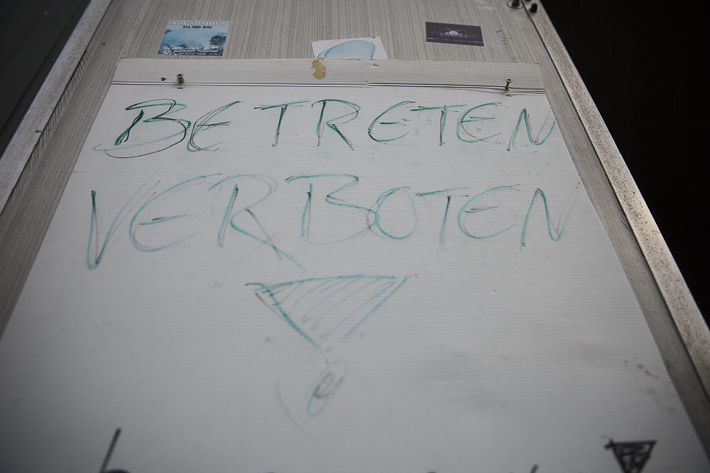 BETRETEN
VERBOTEN